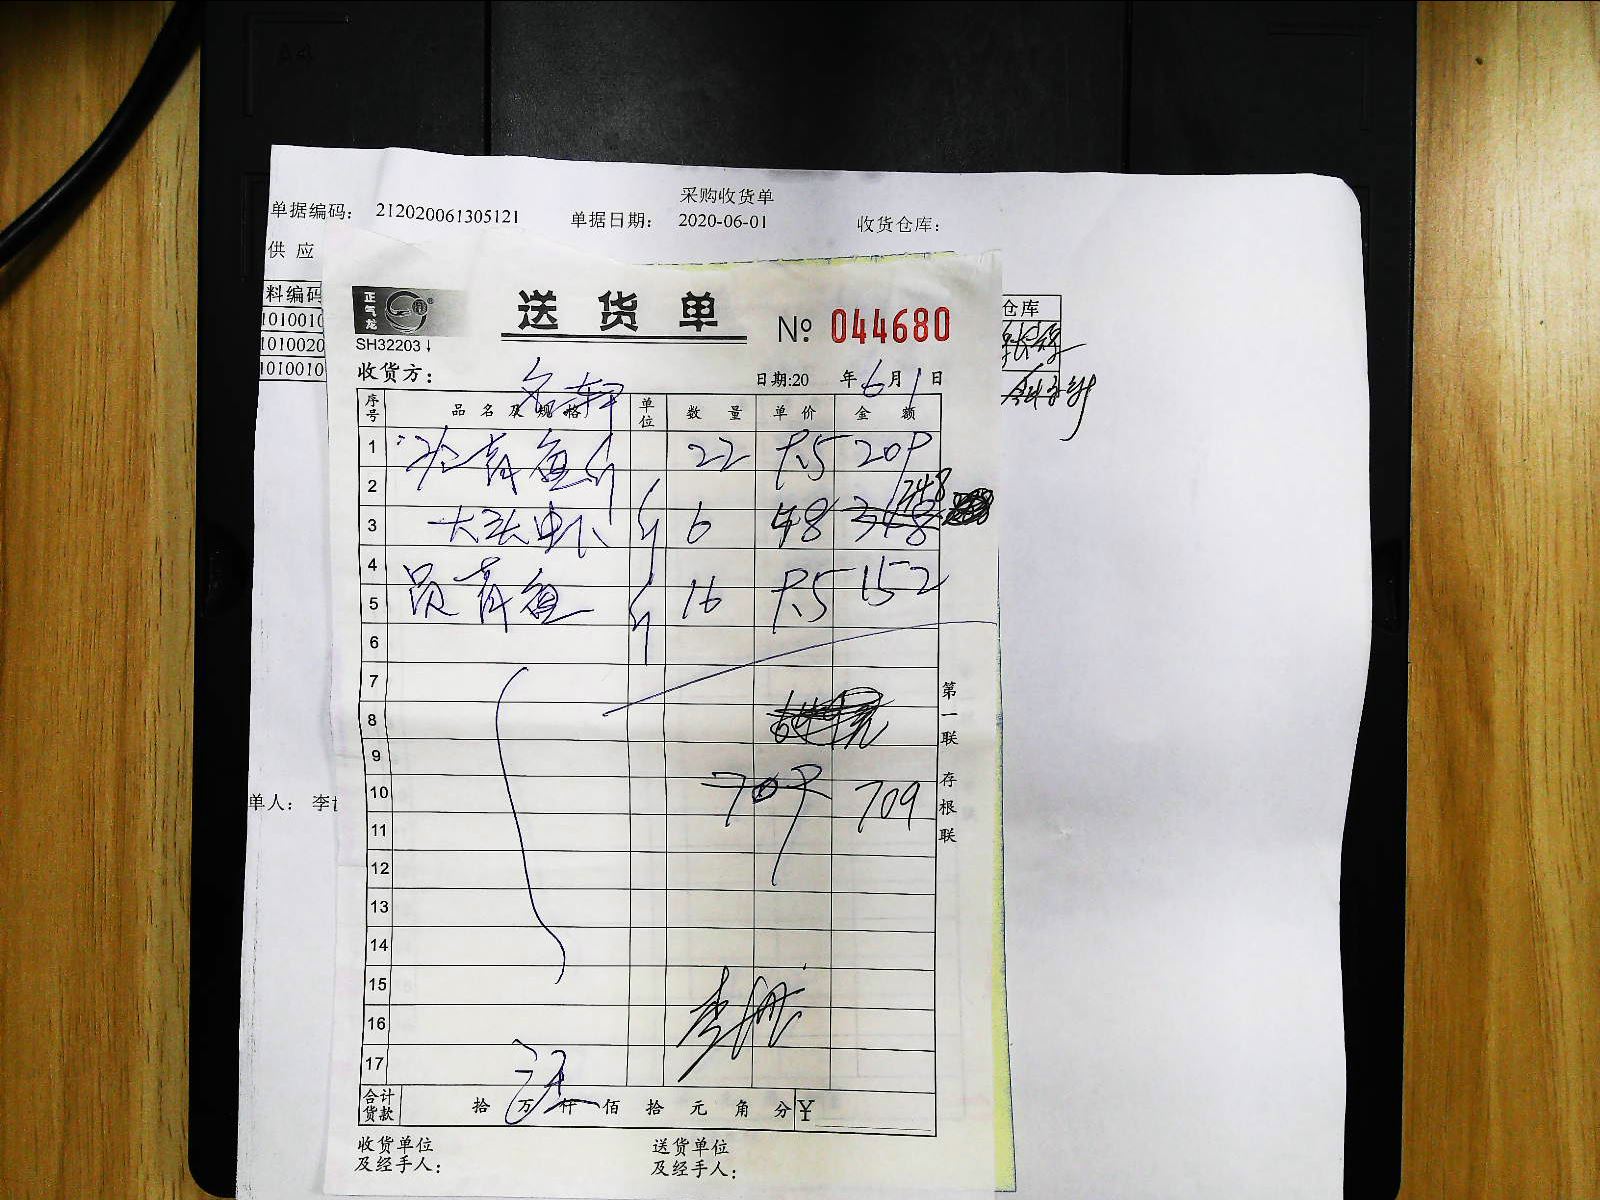 A4
采购收货单
单据编码： 212020061305121 单据日期： 2020-06-01 收货仓库：
供 应
料编码 仓库
1010010
1010020
1010010
正气龙
SH32203
送货单
№ 044680
收货方：
日期:20 年 6 月 1 日
序号 品名及规格 单位 数量 单价 金额
1 青鱼 斤 22 9.5 209
2
3 大头虾 斤 6 48 348 348
4
5 青鱼 斤 16 9.5 152
6
7
8
9
10 709 709
11
12
13
14
15
16
17
合计货款 拾 万 仟 佰 拾 元 角 分 ¥
收货单位及经手人：
送货单位及经手人：
第一联 存根联
单人： 李